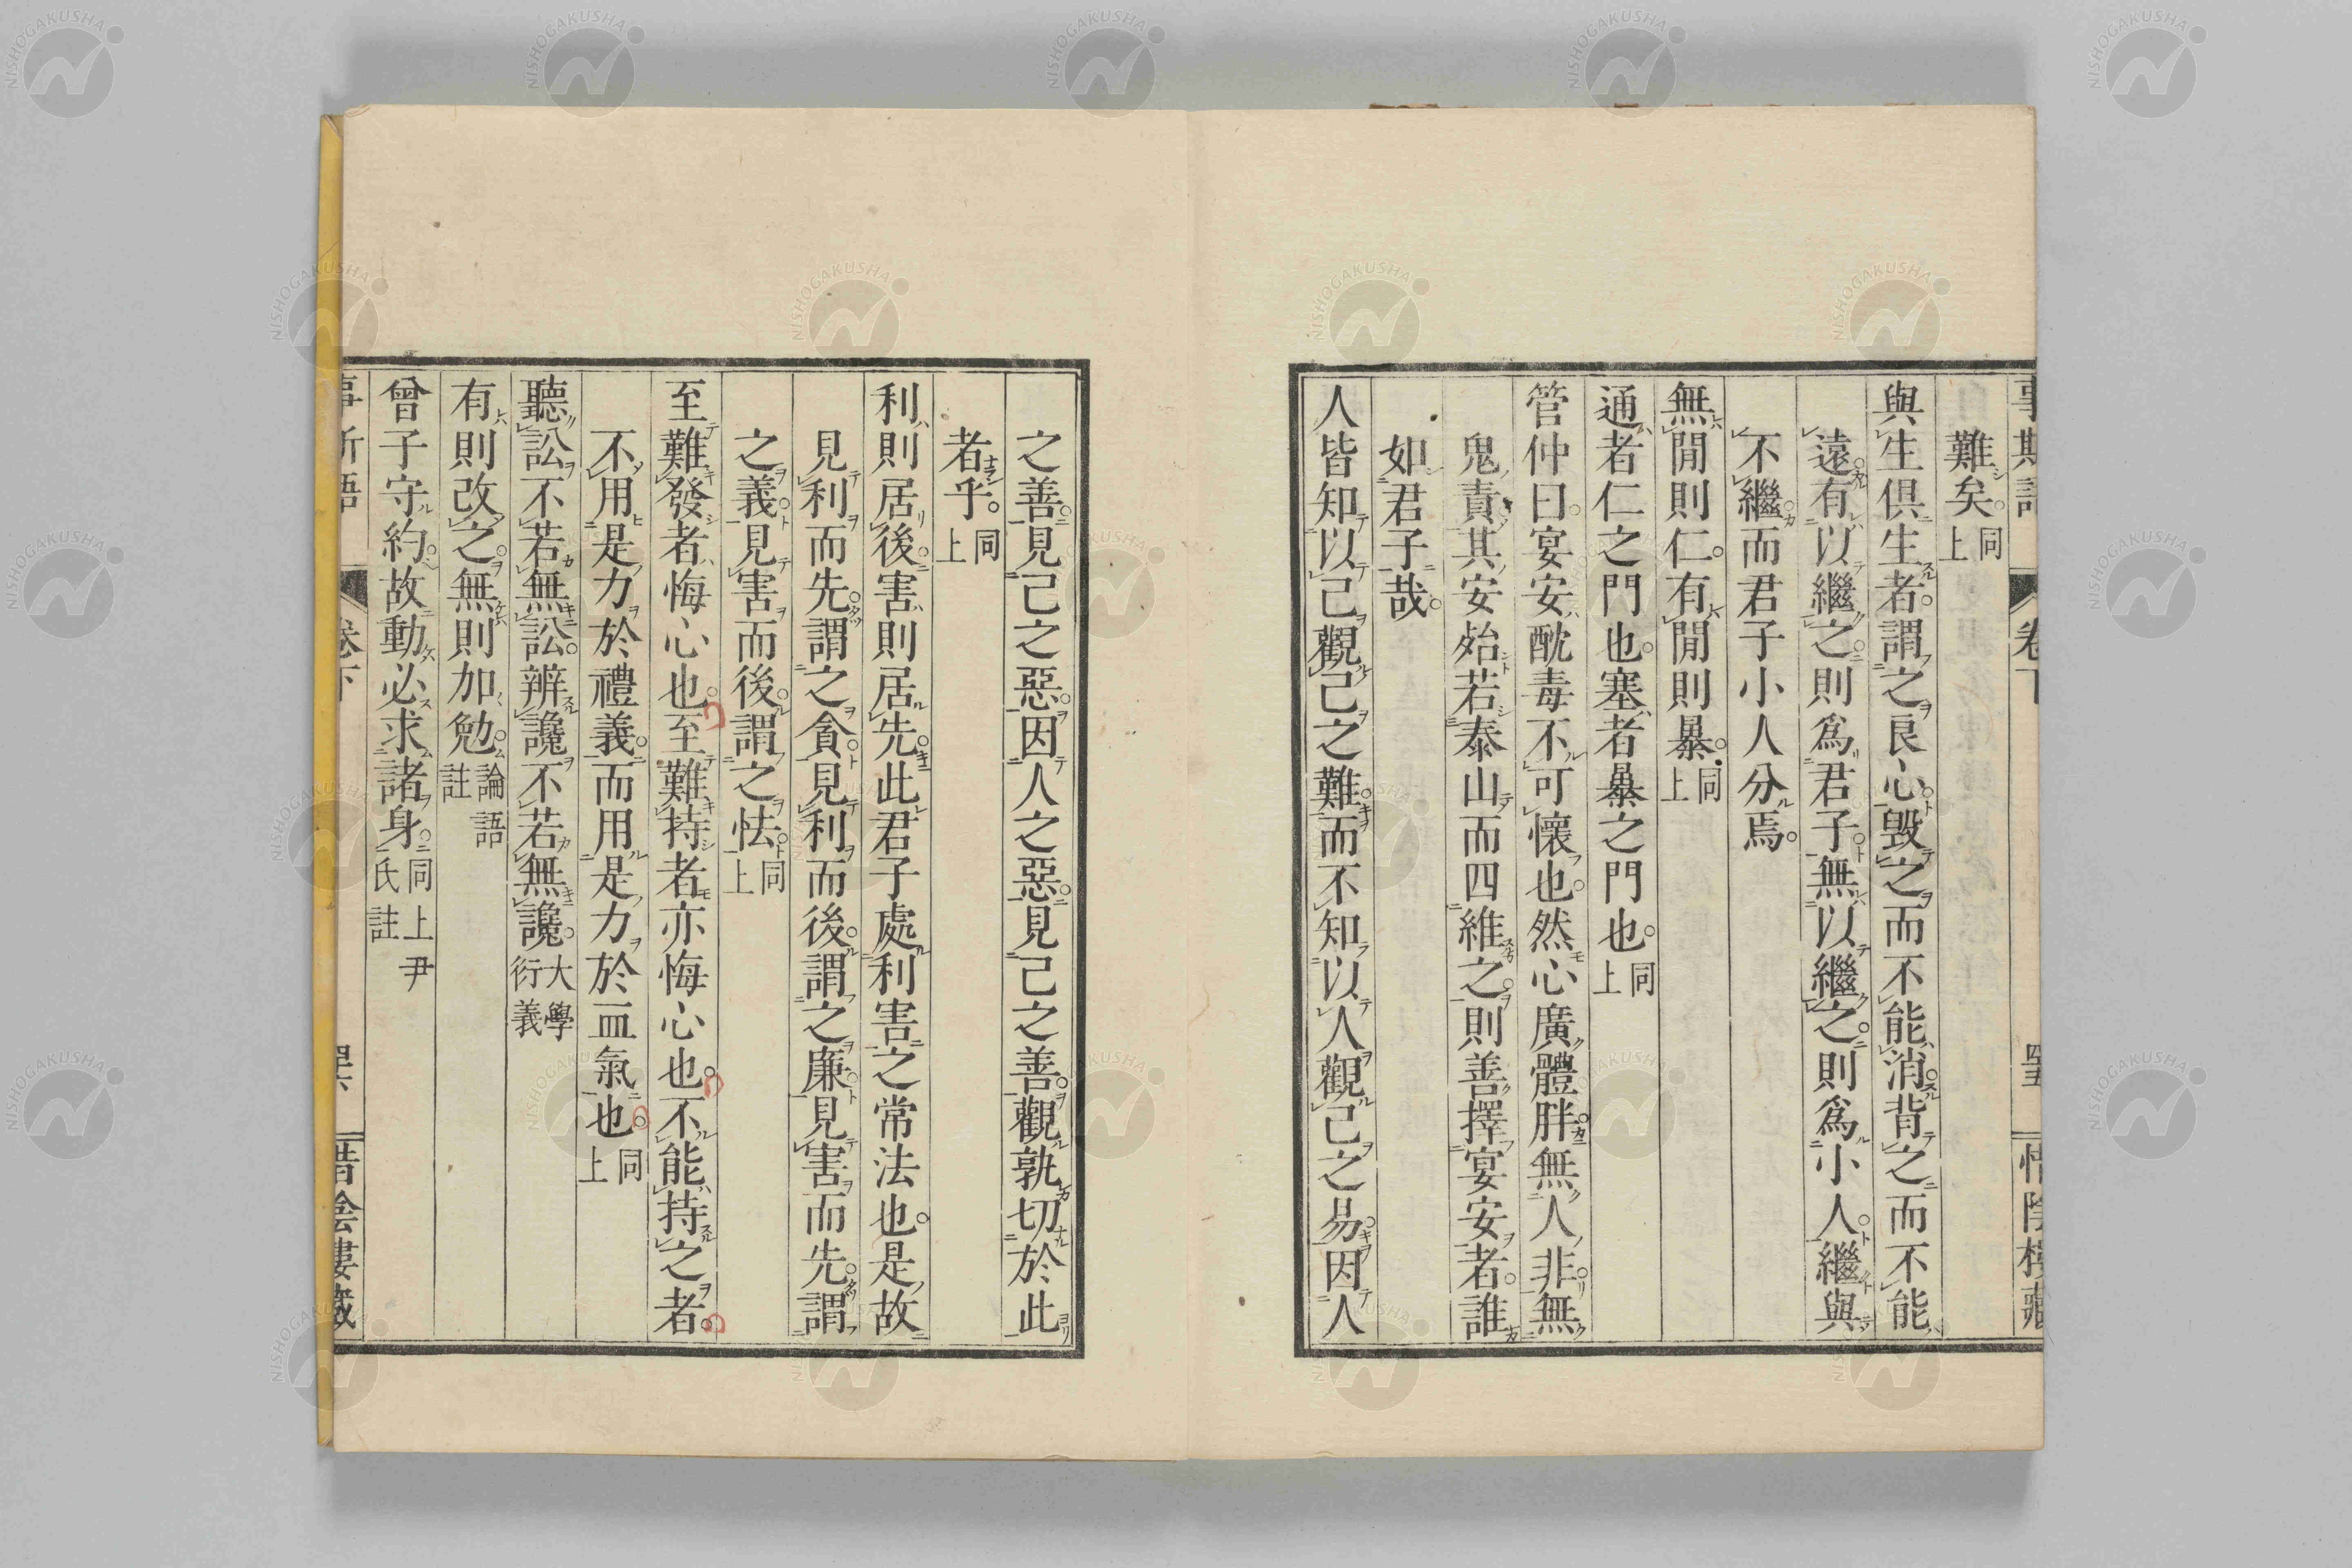 難矣。同上
與生俱生者。謂之良心。毀之而不能消。背之而不能
遠。有以繼之。則爲君子。無以繼之。則爲小人。繼與
不繼。而君子小人分焉。
無閒則仁。有閒則暴。同上
通者仁之門也。塞者暴之門也。同上
管仲曰。宴安酖毒不可懷也。然心廣體胖。無人非。無
鬼責。其安殆若泰山而四維之。則善擇宴安者。誰
如君子哉。
人皆知以己觀己之難。而不知以人觀己之易。因人
之善。見己之惡。因人之惡。見己之善。觀孰切於此
者乎。同上
利則居後。害則居先。此君子處利害之常法也。是故
見利而先。謂之貪。見利而後。謂之廉。見害而先。謂
之義。見害而後。謂之怯。同上
至難發者悔心也。至難持者亦悔心也。不能持之者。
不用是力於禮義。而用是力於血氣也。同上
聽訟不若無訟。辨讒不若無讒。大學衍義
有則改之。無則加勉。論語註
曾子守約。故動必求諸身。同上尹氏註
卷下
NISHOGAKUSHA